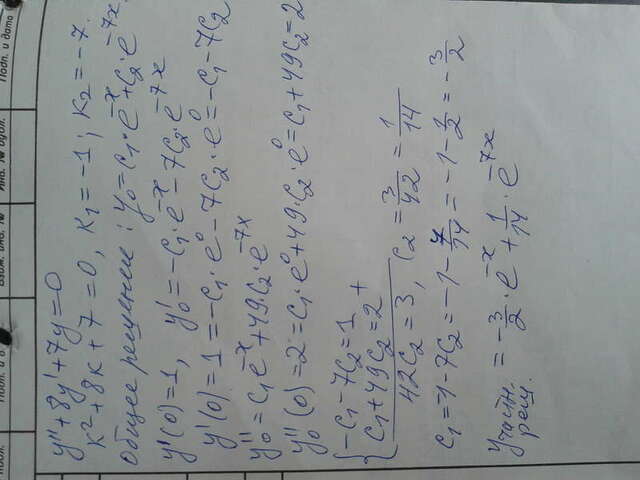 y''+8y'+7y=0
k²+8k+7=0, k₁=-1; k₂=-7.
Общее решение: y₀=C₁·e^-x+C₂·e^-7x.
y'(0)=1, y₀'=-C₁·e^-x-7C₂·e^-7x
y'(0)=1=-C₁·e⁰-7C₂·e⁰=-C₁-7C₂
y₀''=C₁e^-x+49·C₂·e^-7x
y₀''(0)=2=C₁·e⁰+49C₂·e⁰=C₁+49C₂=2
{-C₁-7C₂=1
C₁+49C₂=2 +
42C₂=3, C₂=3/42=1/14
C₁=-1-7C₂=-1-7/14=-1-1/2=-3/2
y частн. реш. =-3/2·e^-x+1/14·e^-7x
Подп. и дата
Инв. № дубл.
Взам. инв. №